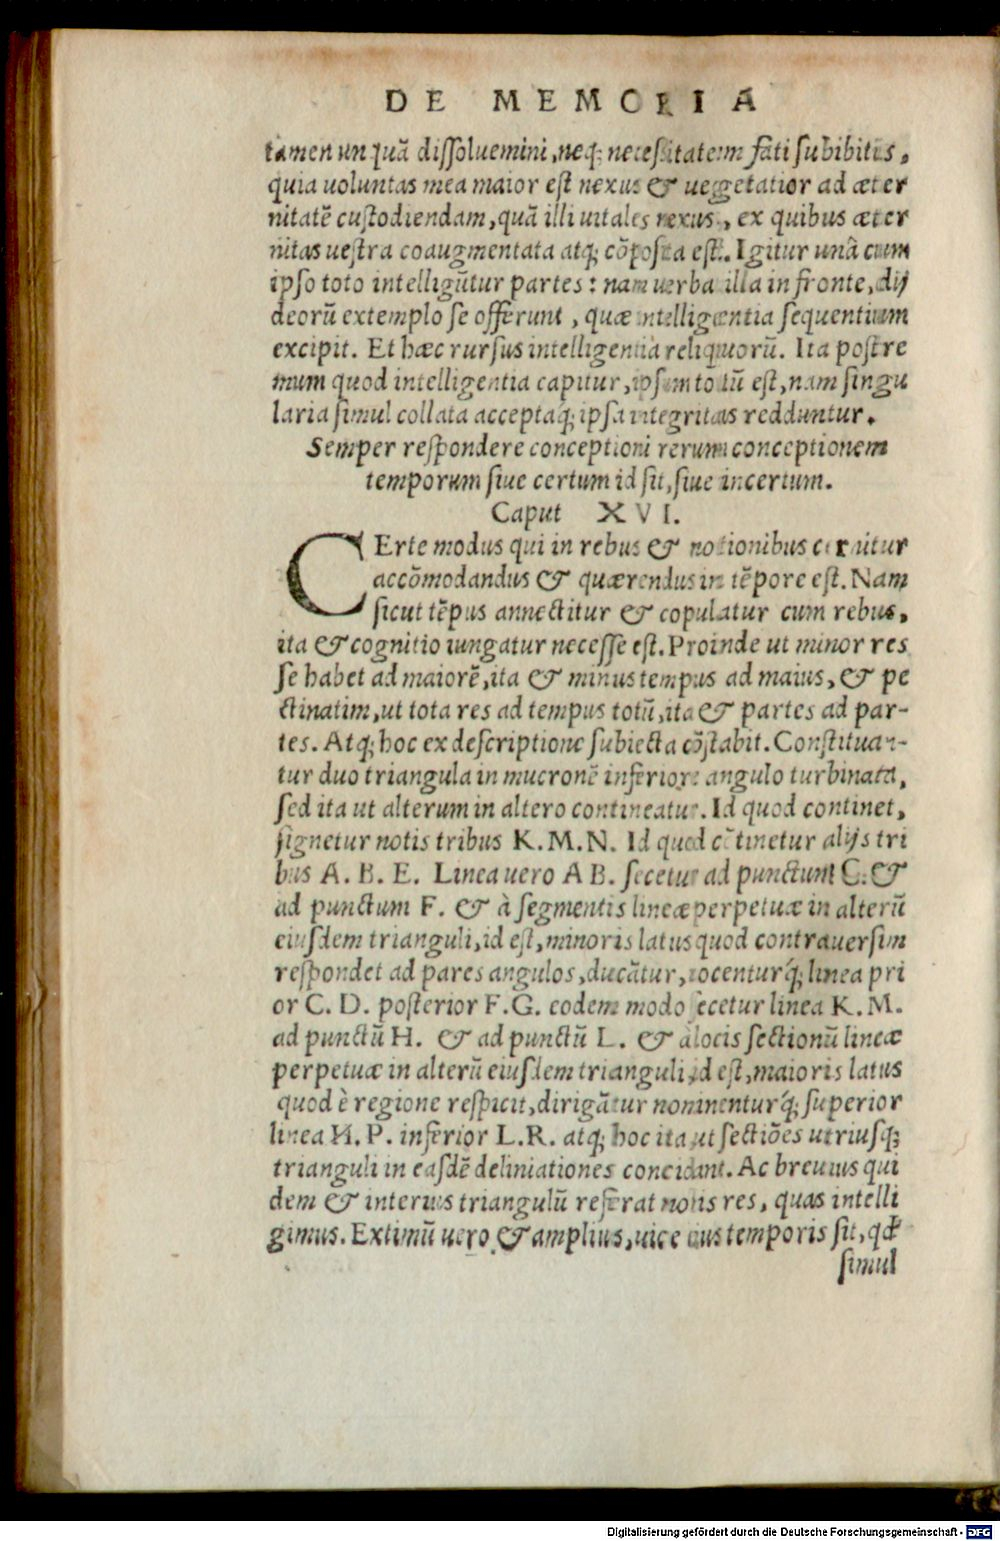 DE MEMORIA
tamen unquã dissoluemini, neq; necessitatem fati subibitis,
quia uoluntas mea maior est nexus & uegetatior ad æter
nitatẽ custodiendam, quã illi uitales nexus, ex quibus æter
nitas uestra coaugmentata atq; cõposita est. Igitur unã cum
ipso toto intelligũtur partes: nam uerba illa in fronte, dij
deorũ extemplo se offerunt, quæ intelligentia sequentium
excipit. Et hæc rursus intelligentia reliquorũ. Ita postre
mum quod intelligentia capitur, ipsum totũ est, nam singu
laria simul collata acceptaq; ipsa integritas redduntur.
Semper respondere conceptioni rerum conceptionem
temporum siue certum id sit, siue incertum.
Caput XVI.
CErte modus qui in rebus & notionibus cernitur
accõmodandus & quærendus in tẽpore est. Nam
sicut tẽpus annectitur & copulatur cum rebus,
ita & cognitio iungatur necesse est. Proinde ut minor res
se habet ad maiorẽ, ita & minus tempus ad maius, & pe
ctinatim, ut tota res ad tempus totũ, ita & partes ad par-
tes. Atq; hoc ex descriptione subiecta cõstabit. Constituan-
tur duo triangula in mucronẽ inferiore angulo turbinata,
sed ita ut alterum in altero contineatur. Id quod continet,
signetur notis tribus K. M. N. Id quod cõtinetur alijs tri
bus A. B. E. Linea uero A B. secetur ad punctum C. &
ad punctum F. & à segmentis lineæ perpetuæ in alterũ
eiusdem trianguli, id est, minoris latus quod contrauersim
respondet ad pares angulos, ducãtur, uocenturq́; linea pri
or C. D. posterior F. G. eodem modo secetur linea K. M.
ad punctũ H. & ad punctũ L. & à locis sectionũ lineæ
perpetuæ in alterũ eiusdem trianguli, id est, maioris latus
quod è regione respicit, dirigãtur nominenturq́; superior
linea H. P. inferior L. R. atq; hoc ita ut sectiões utriusq;
trianguli in easdẽ deliniationes concidant. Ac breuius qui
dem & interius triangulũ referat notis res, quas intelli
gimus. Extimũ uero & amplius, uice eius temporis sit, qđ
simul
Digitalisierung gefördert durch die Deutsche Forschungsgemeinschaft - DFG